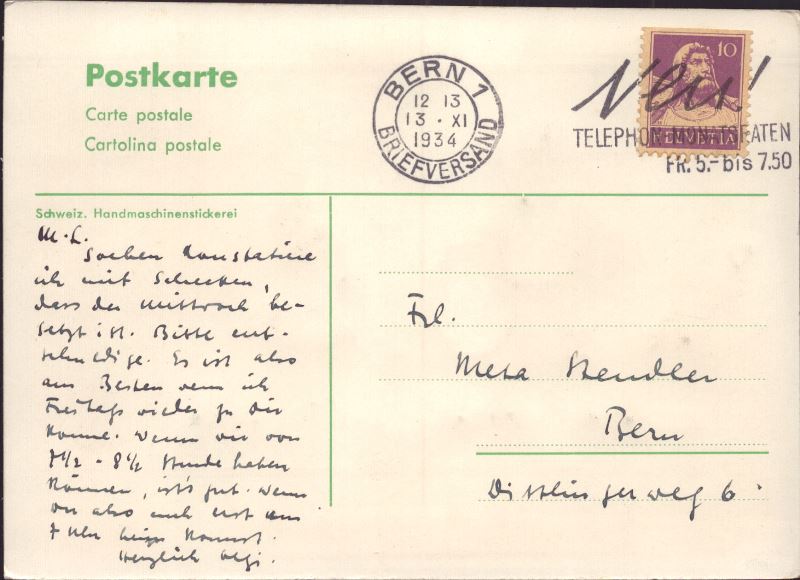 Postkarte
Carte postale
Cartolina postale
BERN 1
12 13
13 · XI
1934
BRIEFVERSAND
10
HELVETIA
Neu!
TELEPHON-MONATSRATEN
FR. 5.- bis 7.50
Schweiz. Handmaschinenstickerei
M. L.
Soeben konstatiere
ich mit Schrecken,
dass der Mittwoch be-
setzt ist. Bitte ent-
schuldige. Es ist also
am Besten wenn ich
Freitags wieder zu dir
komme. Wenn wir von
7½ - 8½ Stunde haben
können, ist's gut. Wenn
du also auch erst um
7 Uhr heim kommst.
Herzlich
Frl.
Meta Stendler
Bern
Distlingerweg 6.